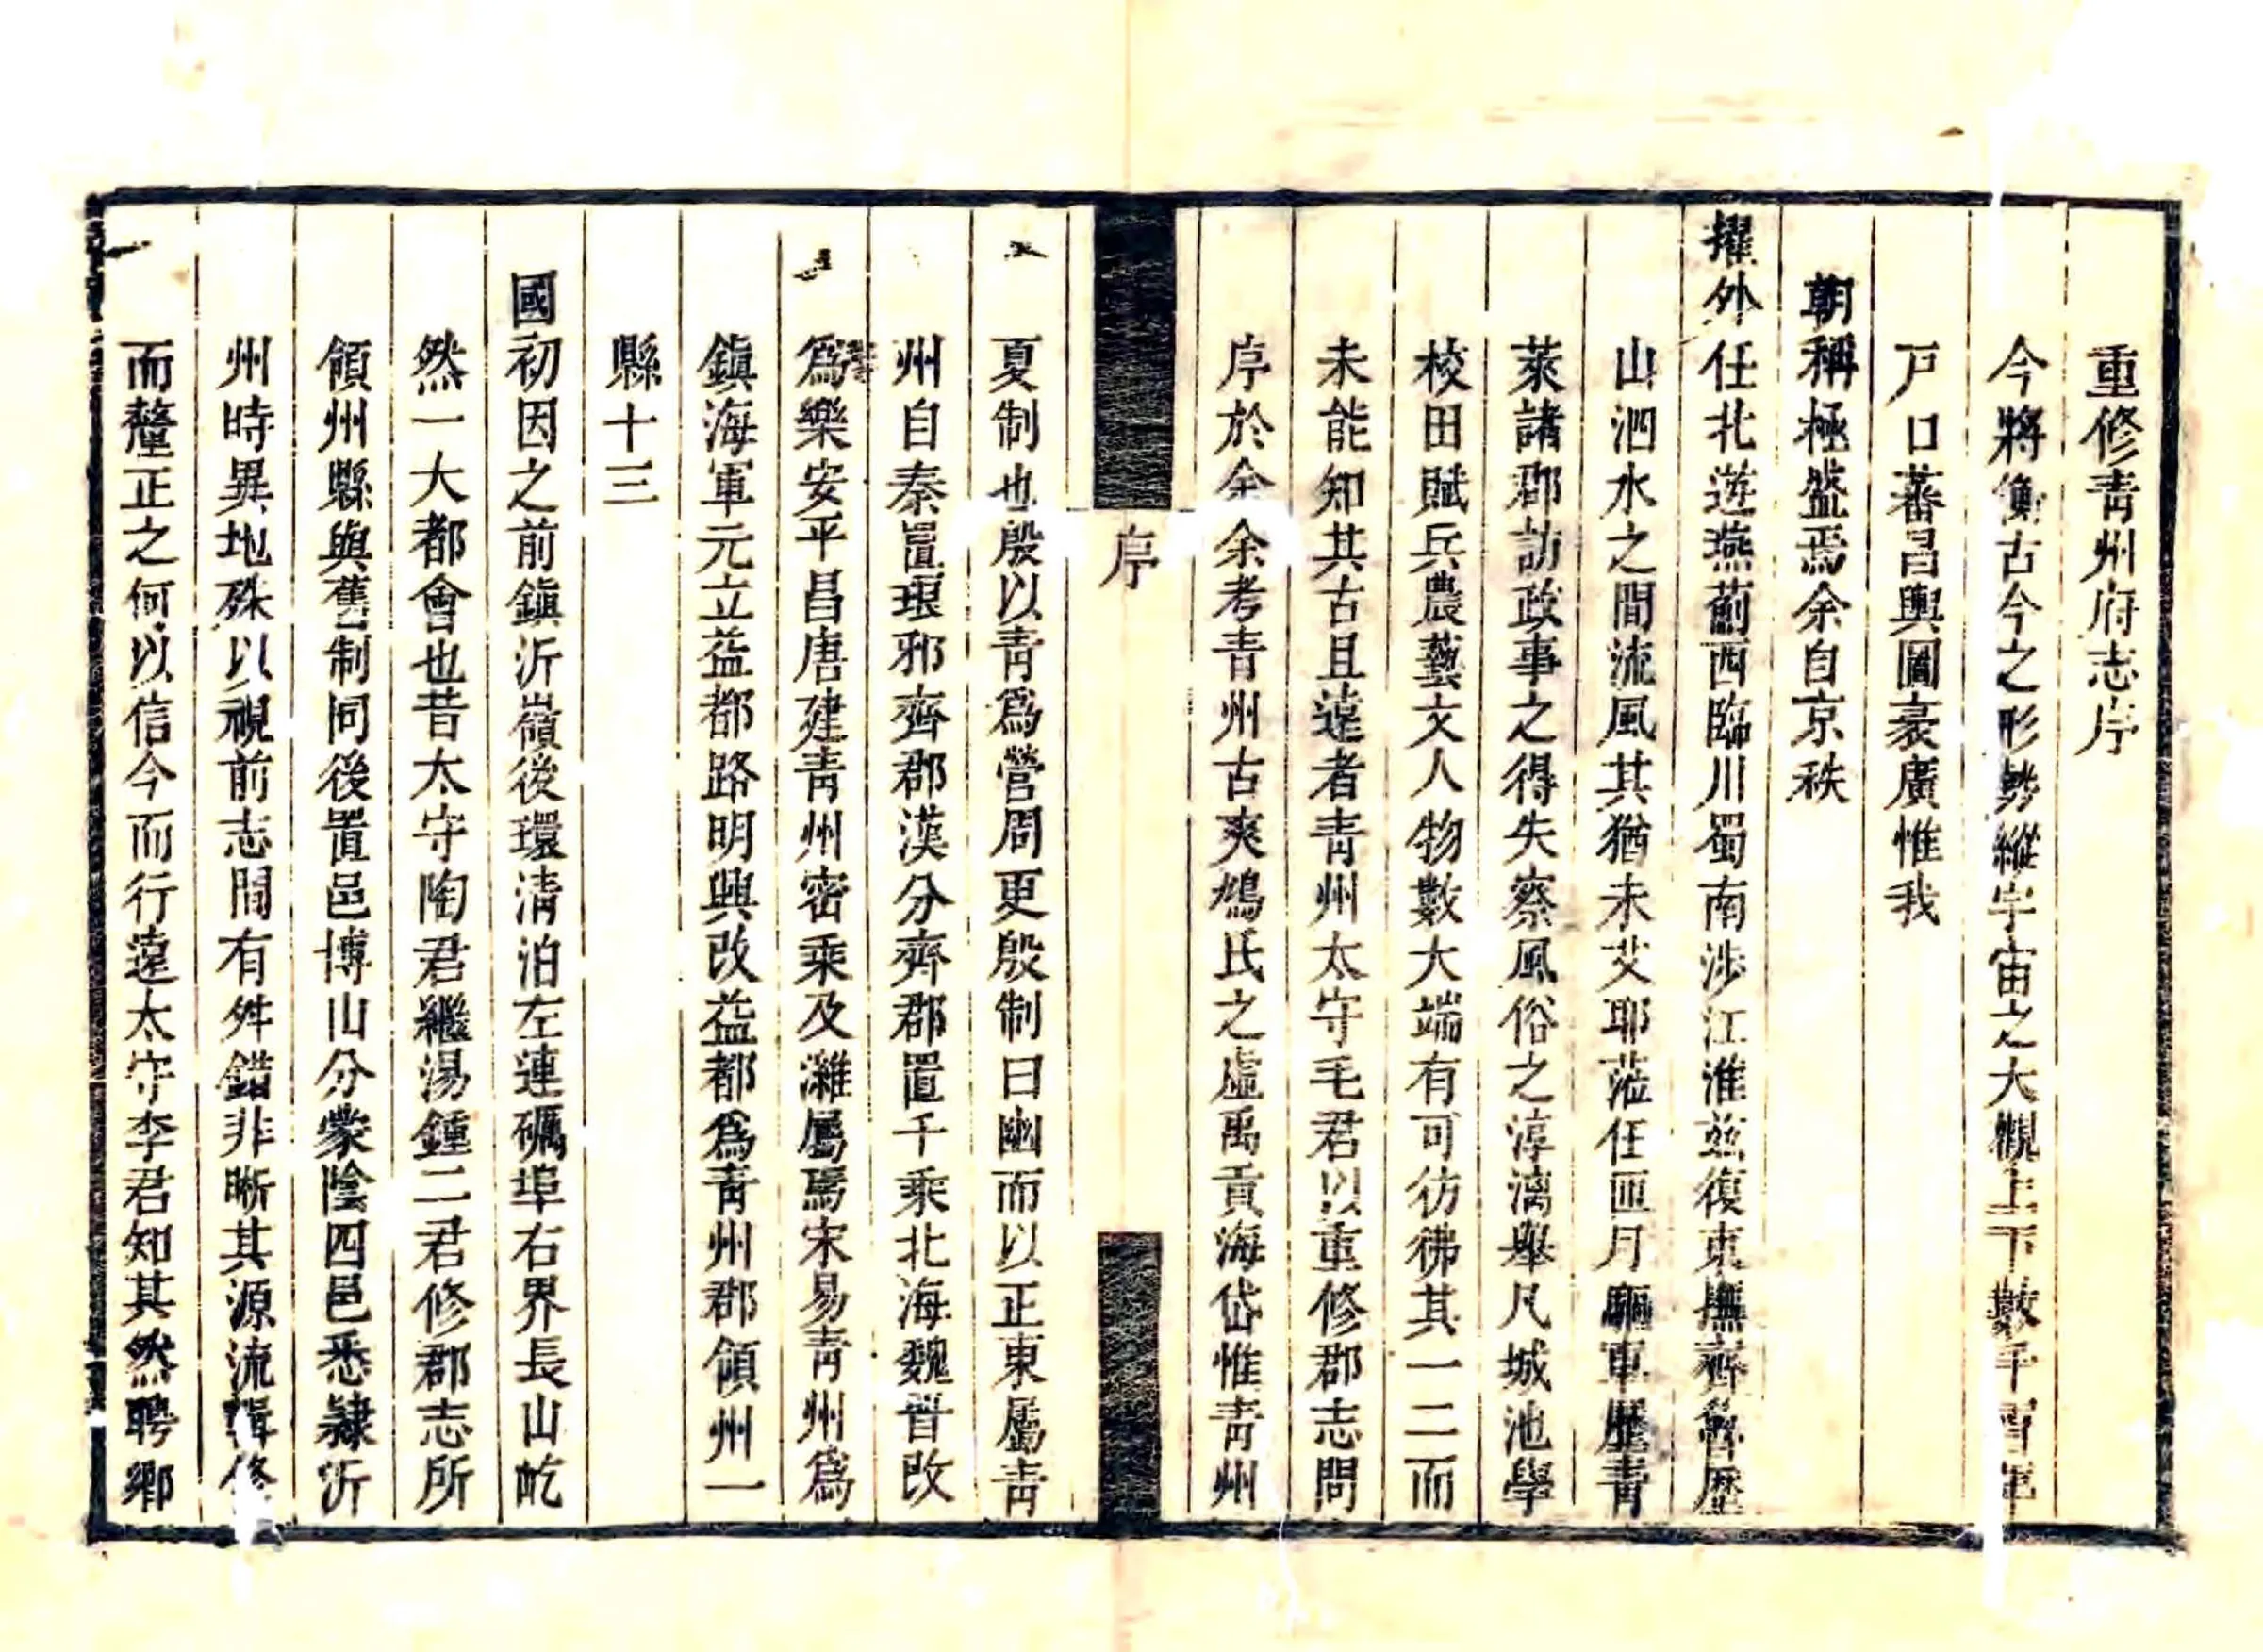 重修青州府志序
今將衡古今之形勢縱宇宙之大觀上下數千
戸口蕃昌輿圖袤廣惟我
朝稱極盛焉余自京秩
擢外任北遊燕薊西臨川蜀南涉江淮兹復東撫齊魯歷
山泗水之間流風其猶未艾耶蒞任匝月驅車歷青
萊諸郡訪政事之得失察風俗之淳漓舉凡城池學
校田賦兵農藝文人物數大端有可彷彿其一二而
未能知其古且遠者青州太守毛君以重修郡志問
序於余余考青州古爽鳩氏之虛禹貢海岱惟青州
序
夏制也殷以青爲營周更殷制曰幽而以正東屬青
州自秦置琅邪齊郡漢分齊郡置千乘北海魏晋改
爲樂安平昌唐建青州密乘及濰屬焉宋易青州爲
鎮海軍元立益都路明興改益都爲青州郡領州一
縣十三
國初因之前鎮沂嶺後環清泊左連礪埠右界長山屹
然一大都會也昔太守陶君繼湯鍾二君修郡志所
領州縣與舊制同後置邑博山分蒙陰四邑悉隸沂
州時異地殊以視前志間有舛錯非晰其源流輯修
而釐正之何以信今而行遠太守李君知其然聘鄉